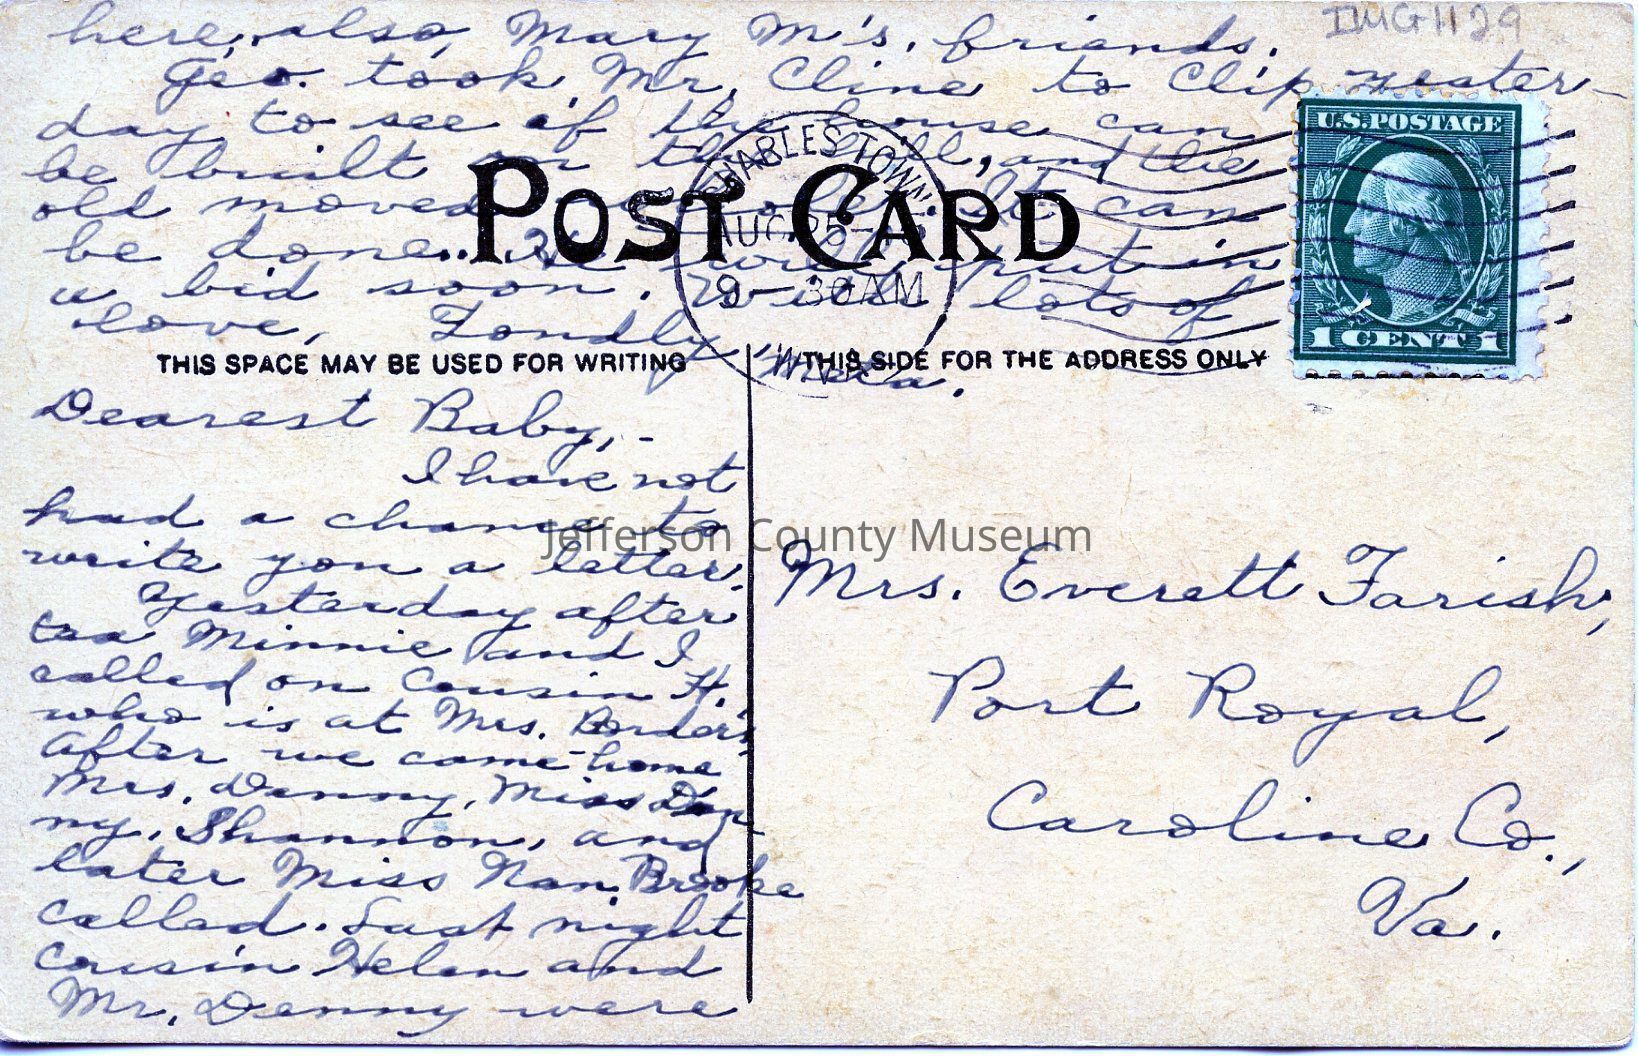 here, also, Mary M's. friends.
IMG1129
Geo. took Mr. Cline to Clip yester-
day to see if the house can
be built on the hill, and the
old moved. It can
be done. He will put in
a bid soon. With lots of
love, Fondly,
U.S. POSTAGE
1 CENT 1
CHARLES TOWN,
AUG 25
9 30AM
W.VA.
POST CARD
THIS SPACE MAY BE USED FOR WRITING
THIS SIDE FOR THE ADDRESS ONLY
Dearest Baby,-
I have not
had a chance to
write you a letter.
Yesterday after
tea Minnie and I
called on Cousin H.
who is at Mrs. Border's
After we came home
Mrs. Denny, Miss Den-
ny, Shannon, and
later Miss Nan Brooke
called. Last night
Cousin Helen and
Mr. Denny were
Mrs. Everett Farish,
Port Royal,
Caroline Co.,
Va.
Jefferson County Museum